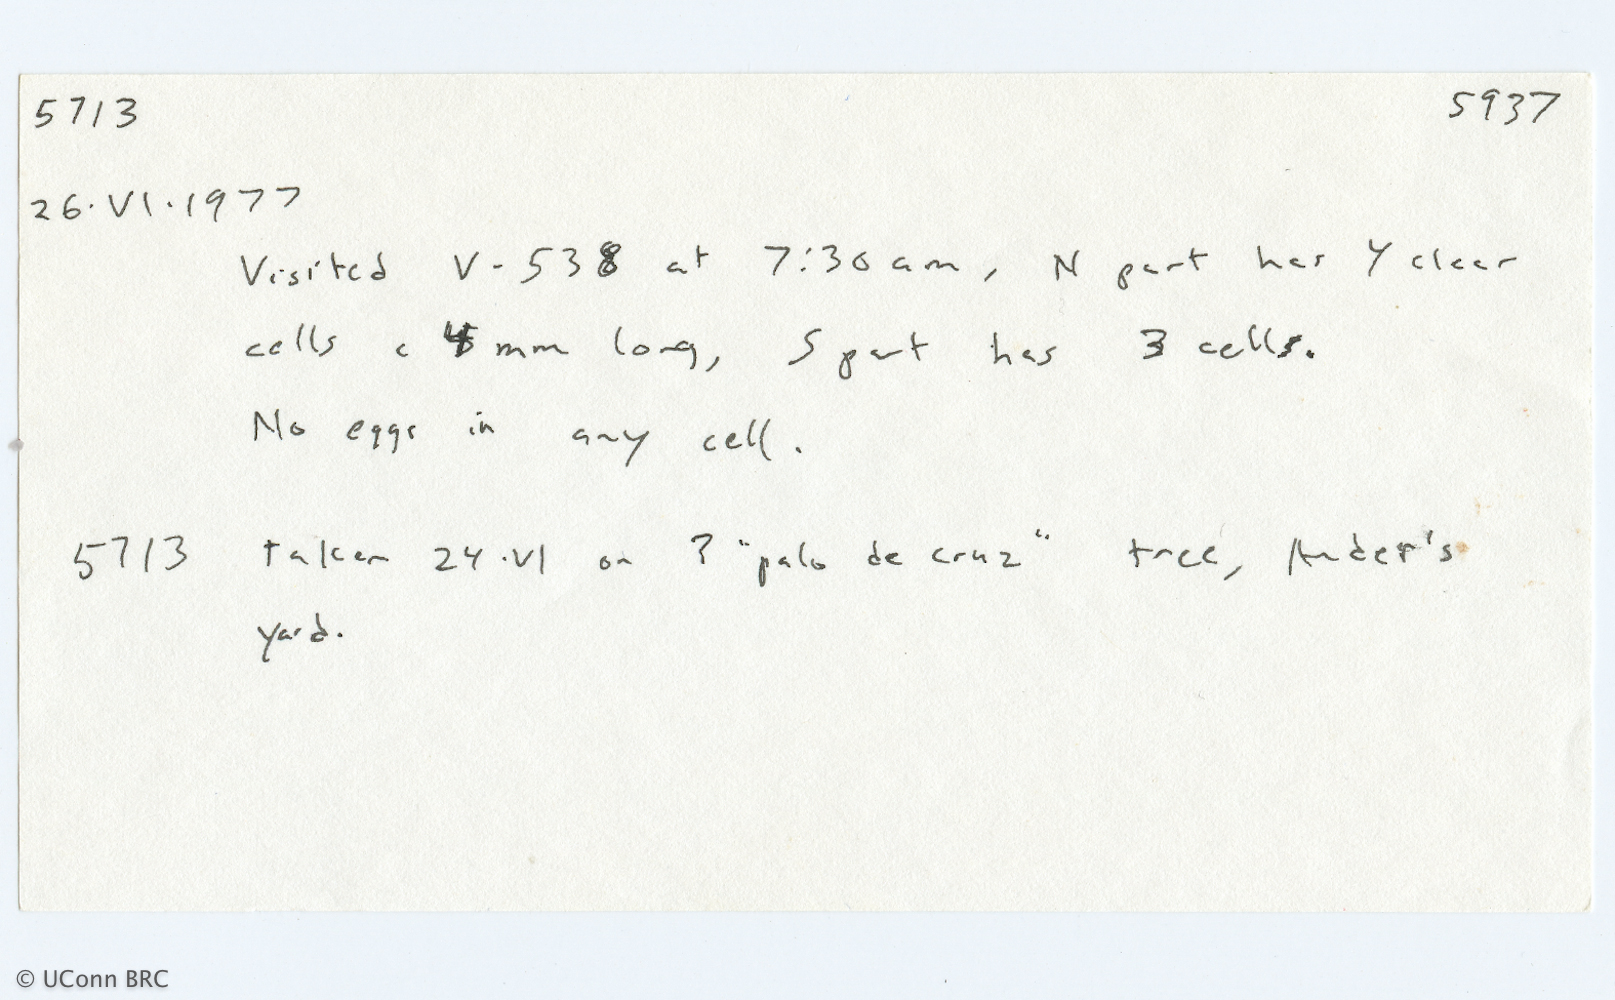 5713 5937
26.VI.1977
Visited V-538 at 7:30 am, N part has 4 clear
cells c 4 mm long, S part has 3 cells.
No eggs in any cell.
5713 taken 24.VI on ? "palo de cruz" tree, Ander's
yard.
© UConn BRC